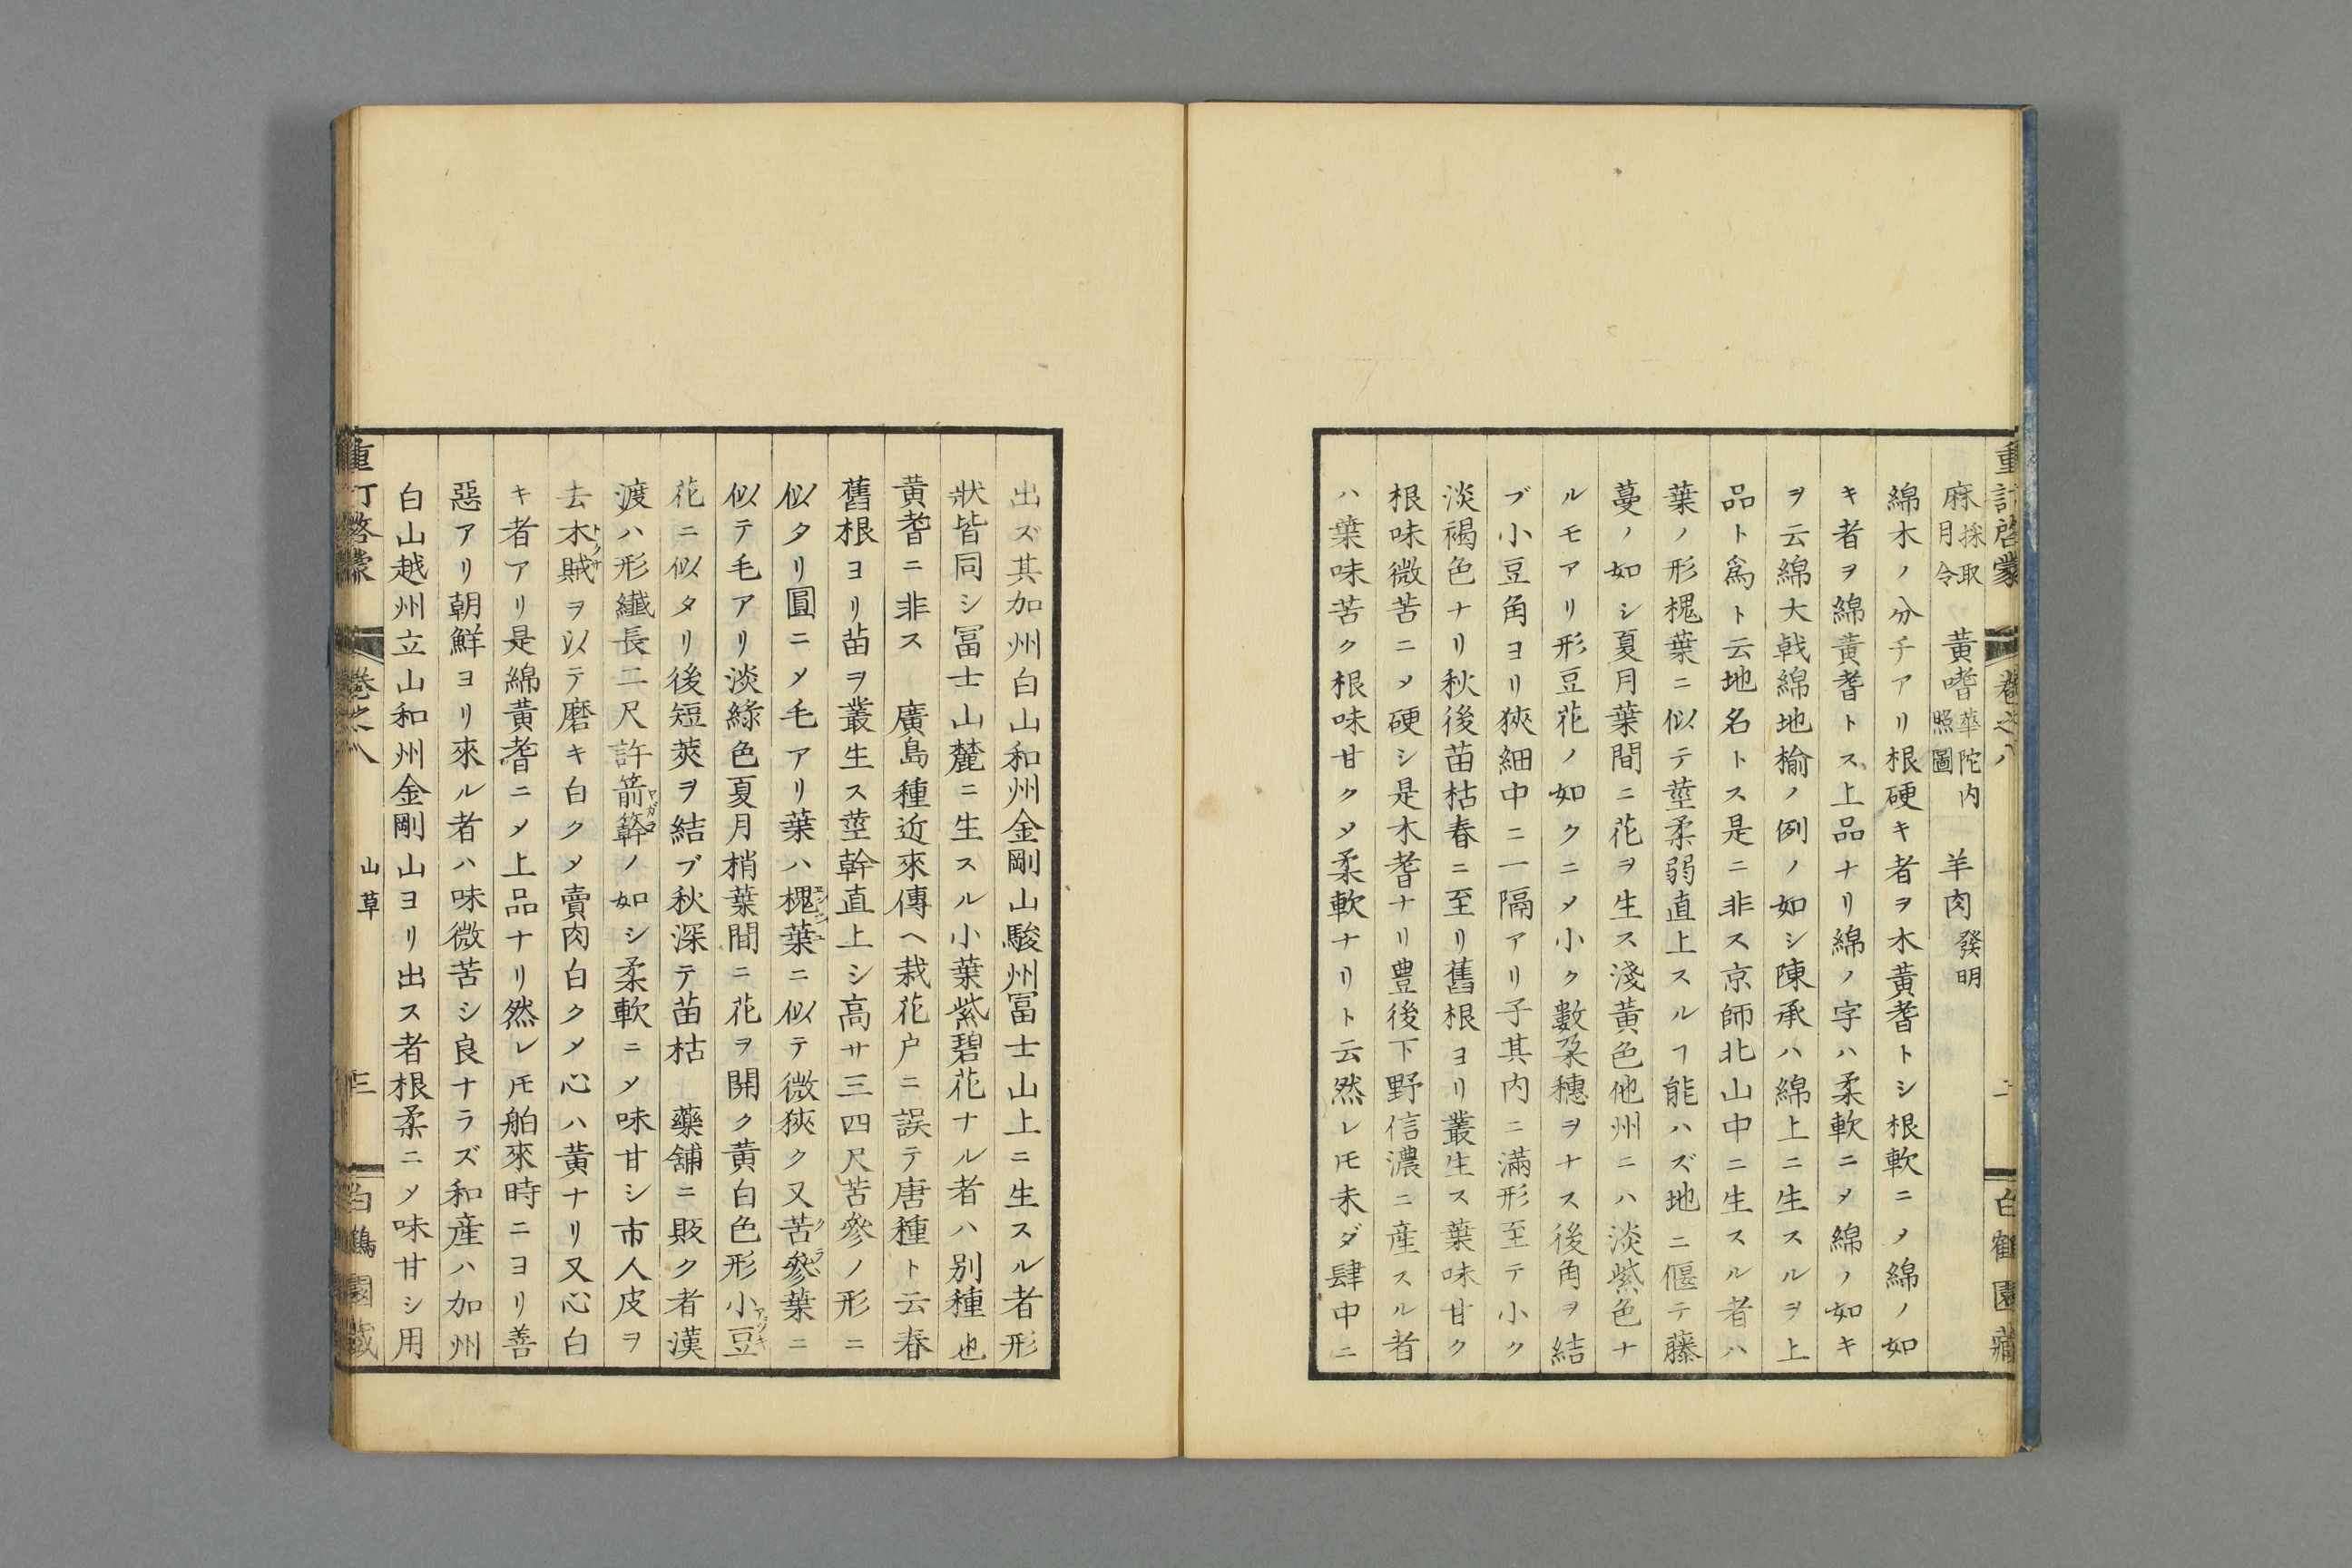 重訂啓蒙 卷之八 二 白鶴園藏
麻採取月令 黃嗜華陀内照圖 羊肉發明
綿木ノ分チアリ根硬キ者ヲ木黃耆トシ根軟ニメ綿ノ如
キ者ヲ綿黃耆トス上品ナリ綿ノ字ハ柔軟ニメ綿ノ如キ
ヲ云綿大戟綿地榆ノ例ノ如シ陳承ハ綿上ニ生スルヲ上
品ト爲ト云地名トス是ニ非ス京師北山中ニ生スル者ハ
葉ノ形槐葉ニ似テ莖柔弱直上スルヿ能ハズ地ニ偃テ藤
蔓ノ如シ夏月葉間ニ花ヲ生ス淺黃色他州ニハ淡紫色ナ
ルモアリ形豆花ノ如クニメ小ク數朶穗ヲナス後角ヲ結
ブ小豆角ヨリ狹細中ニ一隔アリ子其内ニ滿形至テ小ク
淡褐色ナリ秋後苗枯春ニ至リ舊根ヨリ叢生ス葉味甘ク
根味微苦ニメ硬シ是木耆ナリ豊後下野信濃ニ産スル者
ハ葉味苦ク根味甘クメ柔軟ナリト云然レ𪜈未ダ肆中ニ
出ズ其加州白山和州金剛山駿州冨士山上ニ生スル者形
狀皆同シ冨士山麓ニ生スル小葉紫碧花ナル者ハ別種也
黃耆ニ非ス 廣島種近來傳ヘ栽花戸ニ誤テ唐種ト云春
舊根ヨリ苗ヲ叢生ス莖幹直上シ高サ三四尺苦參ノ形ニ
似タリ圓ニメ毛アリ葉ハ槐エンジュ葉ニ似テ微狹ク又苦參クララ葉ニ
似テ毛アリ淡綠色夏月梢葉間ニ花ヲ開ク黃白色形小豆アヅキ
花ニ似タリ後短莢ヲ結ブ秋深テ苗枯 藥舖ニ販ク者漢
渡ハ形纖長二尺許箭簳ヤガラノ如シ柔軟ニメ味甘シ市人皮ヲ
去木賊トクサヲ以テ磨キ白クメ賣肉白クメ心ハ黃ナリ又心白
キ者アリ是綿黃耆ニメ上品ナリ然レ𪜈舶來時ニヨリ善
惡アリ朝鮮ヨリ來ル者ハ味微苦シ良ナラズ和産ハ加州
白山越州立山和州金剛山ヨリ出ス者根柔ニメ味甘シ用
重訂啓蒙 卷之八 山草 三 白鶴園藏